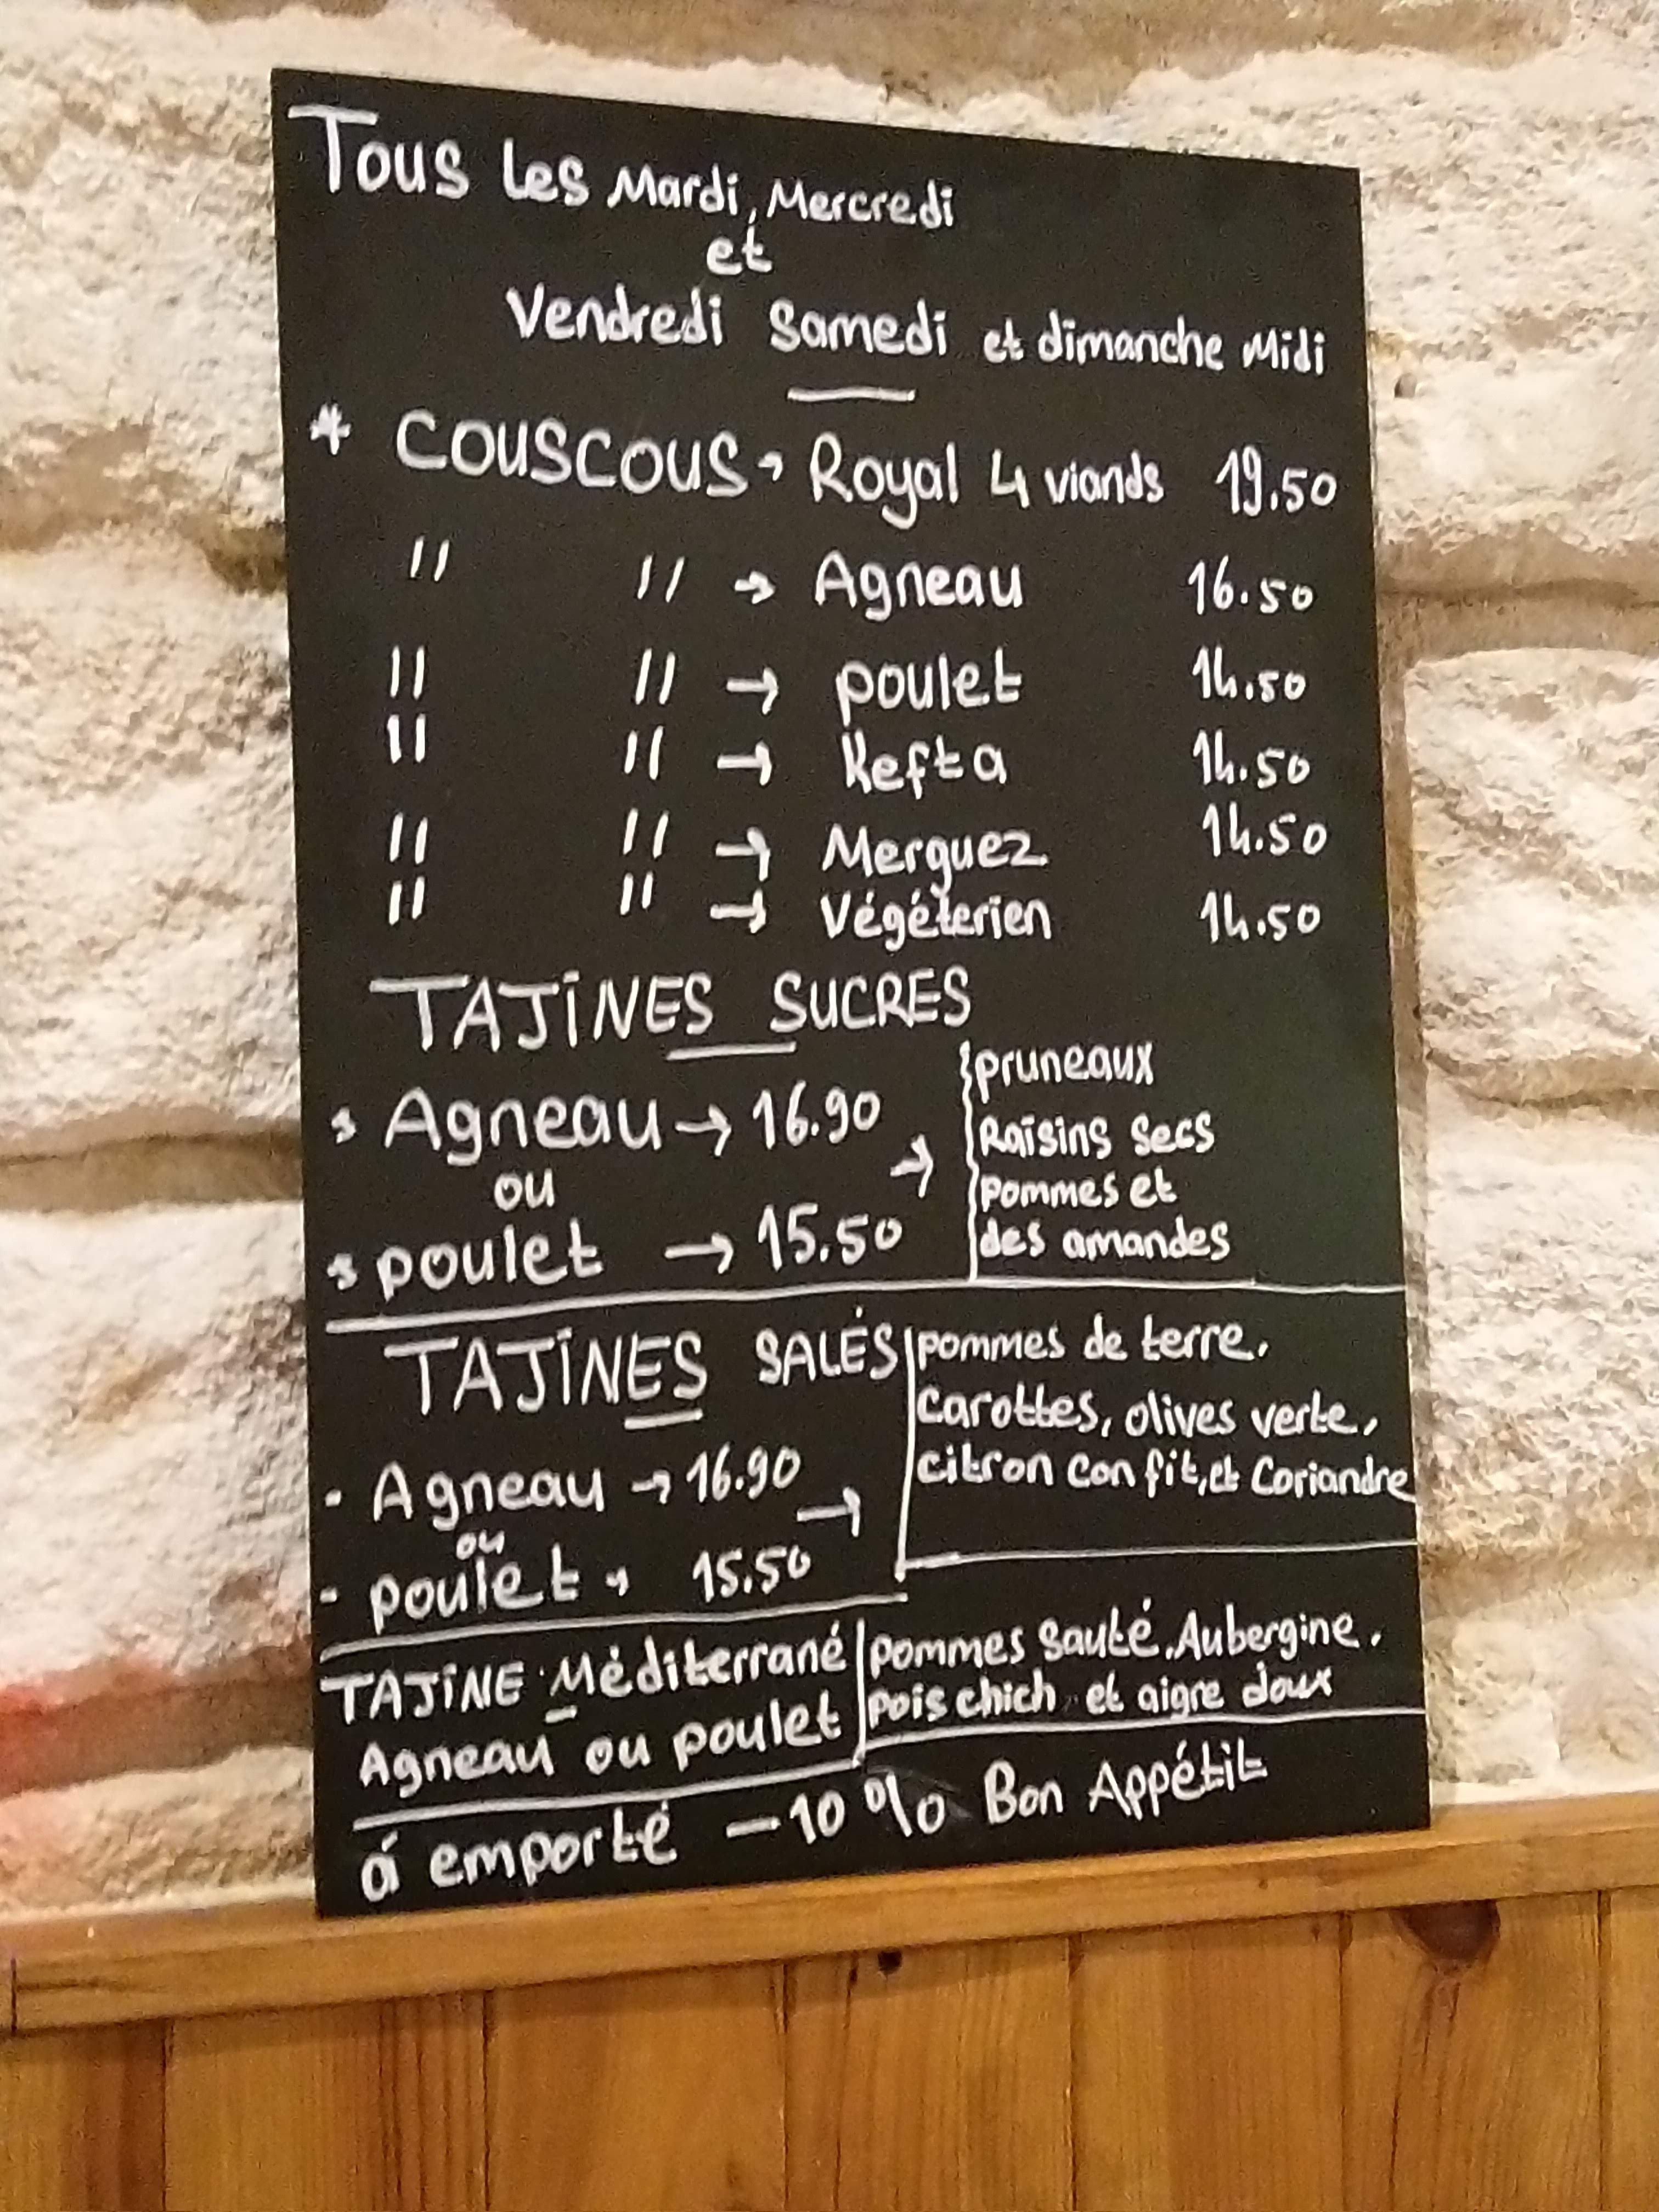 Tous les Mardi, Mercredi
et
Vendredi Samedi et dimanche Midi
* COUSCOUS → Royal 4 viands 19.50
" " → Agneau 16.50
" " → poulet 14.50
" " → Kefta 14.50
" " → Merguez 14.50
" " → Végéterien 14.50
TAJINES SUCRES
* Agneau → 16.90
ou
* poulet → 15.50
→ pruneaux
Raisins secs
pommes et
des amandes
TAJINES SALÉS
- Agneau → 16.90
ou
- poulet → 15.50
→ pommes de terre.
Carottes, olives verte,
citron confit, et Coriandre
TAJINE Méditerrané
Agneau ou poulet
pommes sauté. Aubergine.
pois chich et aigre doux
á emporté -10% Bon Appétit